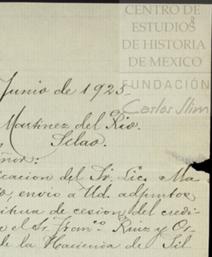 CENTRO DE
ESTUDIOS
DE HISTORIA
DE MEXICO
FUNDACIÓN
Carlos Slim
Junio de 1925.
Martinez del Rio.
Silao.
icacion del Sr. Lic. Ma-
o, envio a Ud. adjuntos,
itura de cesion, del credi-
o el Sr. Franco. Ruiz y Or-
de la Hacienda de Sil